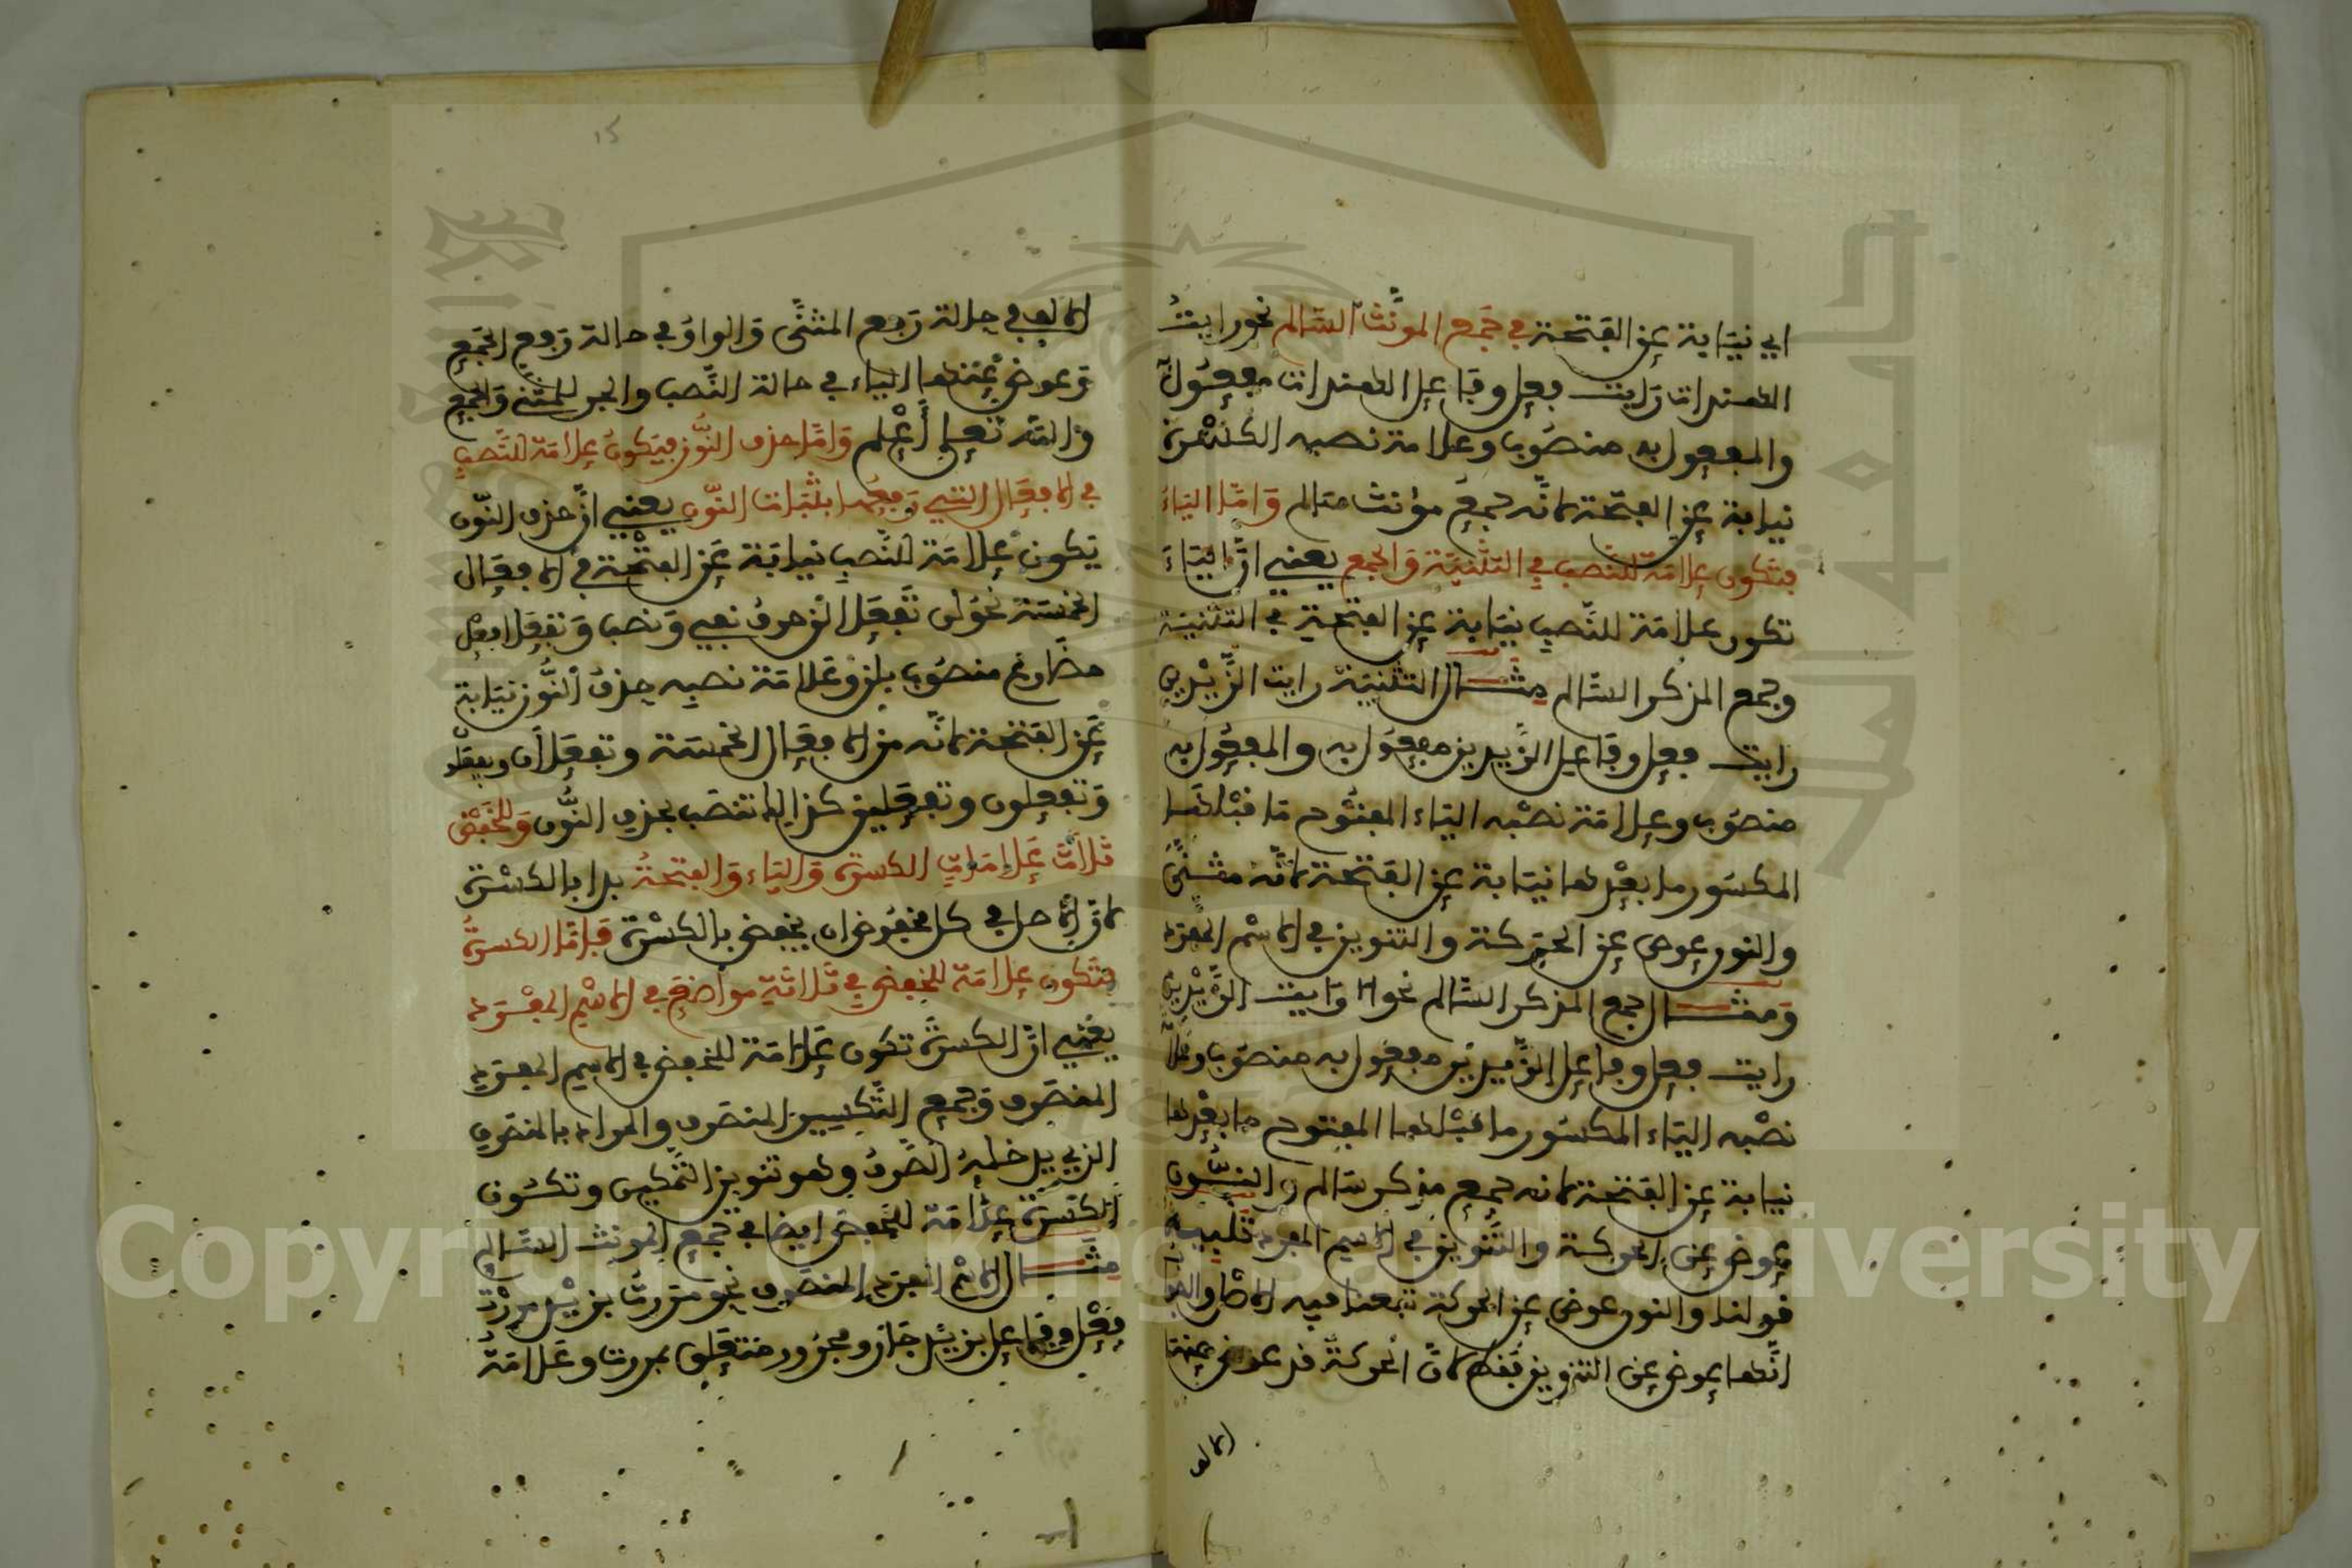 اي نيابة عن الفتحة في جمع المونث السالم نحو رايت
الهندات رايت فعل وفاعل الهندات مفعول
والمفعول به منصوب وعلامة نصبه الكسرة
نيابة عن الفتحة لانه جمع مؤنث سالم واما الياء
فتكون علامة للنصب في التثنية والجمع يعني ان الياء
تكون علامة للنصب نيابة عن الفتحة في التثنية
وجمع المذكر السالم مثال التثنية رايت الزيدين
رايت فعل وفاعل الزيدين مفعول به والمفعول به
منصوب وعلامة نصبه الياء المفتوح ما قبلها
المكسور ما بعدها نيابة عن الفتحة لانه مثنى
والنون عوض عن الحركة والتنوين في الاسم المفرد
ومثال جمع المذكر السالم نحو رايت الزيدين
رايت فعل وفاعل الزيدين مفعول به منصوب وعلا
نصبه الياء المكسور ما قبلها المفتوح ما بعدها
نيابة عن الفتحة لانه جمع مذكر سالم والنون
عوض عن الحركة والتنوين في الاسم المفرد تنبيه
قولنا والنون عوض عن الحركة تبعنا فيه
انها عوض عن التنوين فقط لان الحركة قد عوض عنها
الالف
15
الالف في حالة رفع المثنى والواو في حالة رفع الجمع
وعوض عنها الياء في حالة النصب والجر للمثنى والجمع
والله تعلى أعلم واما حذف النون فيكون علامة للنصب
في الافعال التي رفعها بثبات النون يعني ان حذف النون
يكون علامة للنصب نيابة عن الفتحة في الافعال
الخمسة نحو لن تفعلا لن حرف نفي ونصب وتفعلا فعل
مضارع منصوب بلن وعلامة نصبه حذف النون نيابة
عن الفتحة لانه من الافعال الخمسة وتفعلان
وتفعلون وتفعلين كذالك تنصب بحذف النون وللخفض
ثلاث علامات الكسرة والياء والفتحة بدا بالكسرة
لان الاصل في كل مخفوض ان يخفض بالكسرة فاما الكسرة
فتكون علامة للخفض في ثلاثة مواضع في الاسم المفرد
يعني ان الكسرة تكون علامة للخفض في الاسم المفرد
المنصرف وجمع التكسير المنصرف والمراد بالمنصرف
الذي يدخله الصرف وهو تنوين التمكين وتكون
الكسرة علامة للخفض ايضا في جمع المونث السالم
مثال الاسم المفرد المنصرف نحو مررت بزيد مررت
فعل وفاعل بزيد جار ومجرور متعلق بمررت وعلامة
Copyright © King Saud University